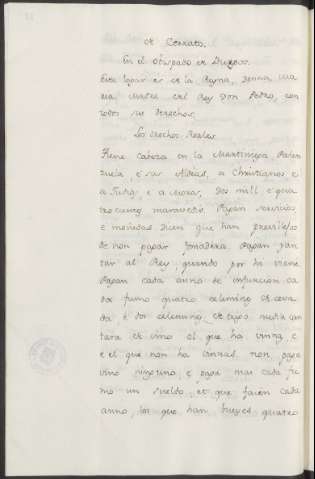 de Cerrato.
En el Obispado de Burgos.
Este logar es de la Reyna, Donna Ma
ria, Madre del Rey Don Pedro, con
todos sus derechos.
Los derechos Reales.
Tiene Cabeza en la Martiniega, Palen
zuela, e sus Aldeas, a Christianos e
a Judios, e a Moros, Dos mill e qua
trocientos maravedis. Pagan servicios,
e monedas. Dicen que han previllejo
de non pagar fonsadera. Pagan yan
tar al Rey, quando por hi viene
Pagan cada anno de infurcion ca
da fumo quatro celemines de ceva
da, e dos celemines de trigo, media can
tara de vino el que ha vinna, e
e el que non ha vinnas, non paga
vino ninguno, e paga mas cada fu
mo un sueldo, et que facen cada
anno, los que han bueyes quatro